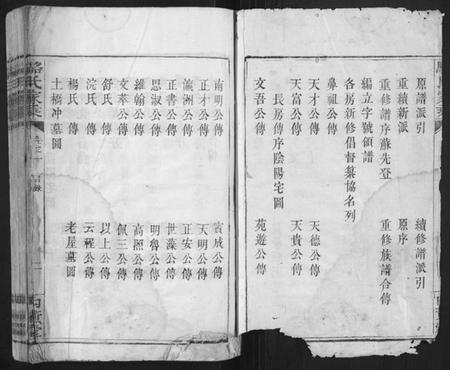 原譜派引　續修譜派引
重續新派　原序
重修譜序蘇先登　重修族譜合傳
編立字號領譜
各房新修倡督纂協名列
鼻祖公傳　天德公傳
天富公傳　天貴公傳
天才公傳
長房傳序陰陽宅圖
文吾公傳　苑遊公傳
南明公傳　賓成公傳
正才公傳　天明公傳
瀛洲公傳　正安公傳
正書公傳　世藻公傳
思淑公傳　明魯公傳
維翰公傳　高照公傳
文萃公傳　佩三公傳
舒氏　傳　以上公傳
浣氏　傳　云程公傳
楊氏　傳　老屋墓圖
土橋冲墓圖
駱氏家乘